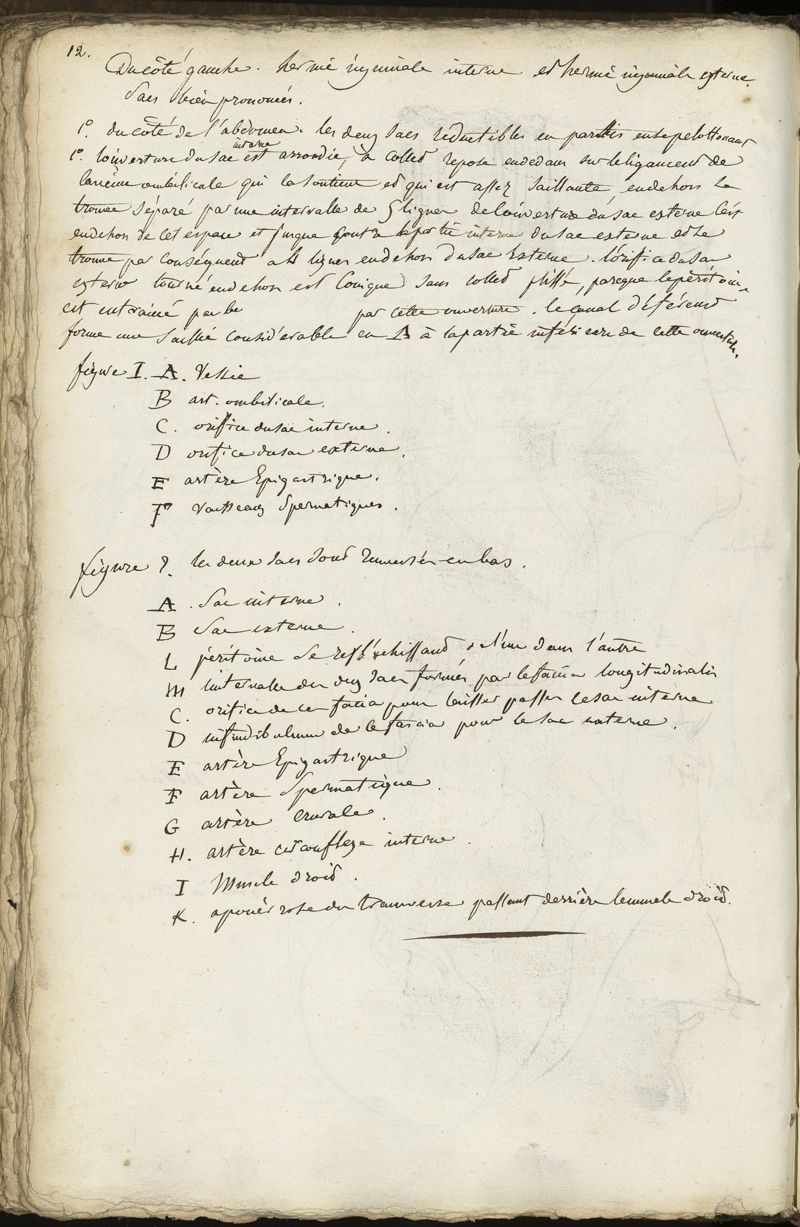 12.
Du côté gauche. hernie inguinale interne et hernie inguinale externe.
Sacs bien prononcés.
1º. du côté de l'abdomen. les deux sacs réductibles en partis en se pelottonant
1º. l'ouverture du sac interne est arrondie, à collet repose en dedans sur le ligament de
l'artère ombilicale qui la soutient et qui est assez saillante, en dehors
trouve séparé par une intervalle de 5 lignes de l'ouverture du sac externe
en dehors de cet espace et jusque contre la partie interne du sac externe et le
trouve par conséquent a lignes en dehors du sac Externe. l'orifice du sac
externe tourné en dehors est Conique sans collet plissé, parceque le péritoine
est entrainé par le par cette ouverture. le canal déférent
forme une saillie considérable en A à la partie inférieure de cette ouverture.
figure I. A. Vessie
B art. ombilicale.
C. orifice du sac interne.
D orifice du sac externe.
E artère Epigastrique.
F vaisseaux Spermatiques.
figure 2. les deux sacs sont renversés en bas.
A. Sac interne.
B Sac externe.
L péritoine se refléchissant de l'un dans l'autre
M intervalle des deux sacs formés par le fascia longitudinalis
C. orifice de ce fascia pour laisser passer le sac interne
D infundibulum de le fascia pour le sac externe.
E artère Epigastrique
F artère Spermatique.
G artère crurale.
H. artère circonflexe interne.
I Muscle droit.
K. aponévrose du transverse passant derrière le muscle droit.